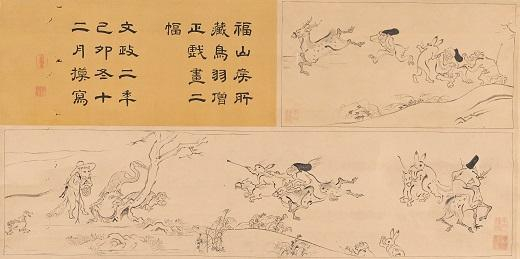 福山侯所
藏鳥羽僧
正戲畫二
幅
文政二年
己卯冬十
二月摸寫